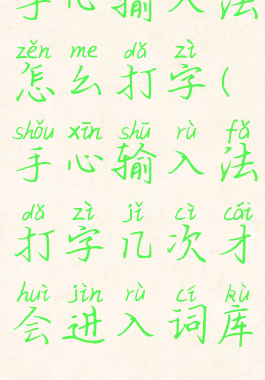 手心输入法
zěn me dǎ zì
怎么打字(
shǒu xīn shū rù fǎ
手心输入法
dǎ zì jǐ cì cái
打字几次才
huì jìn rù cí kù
会进入词库